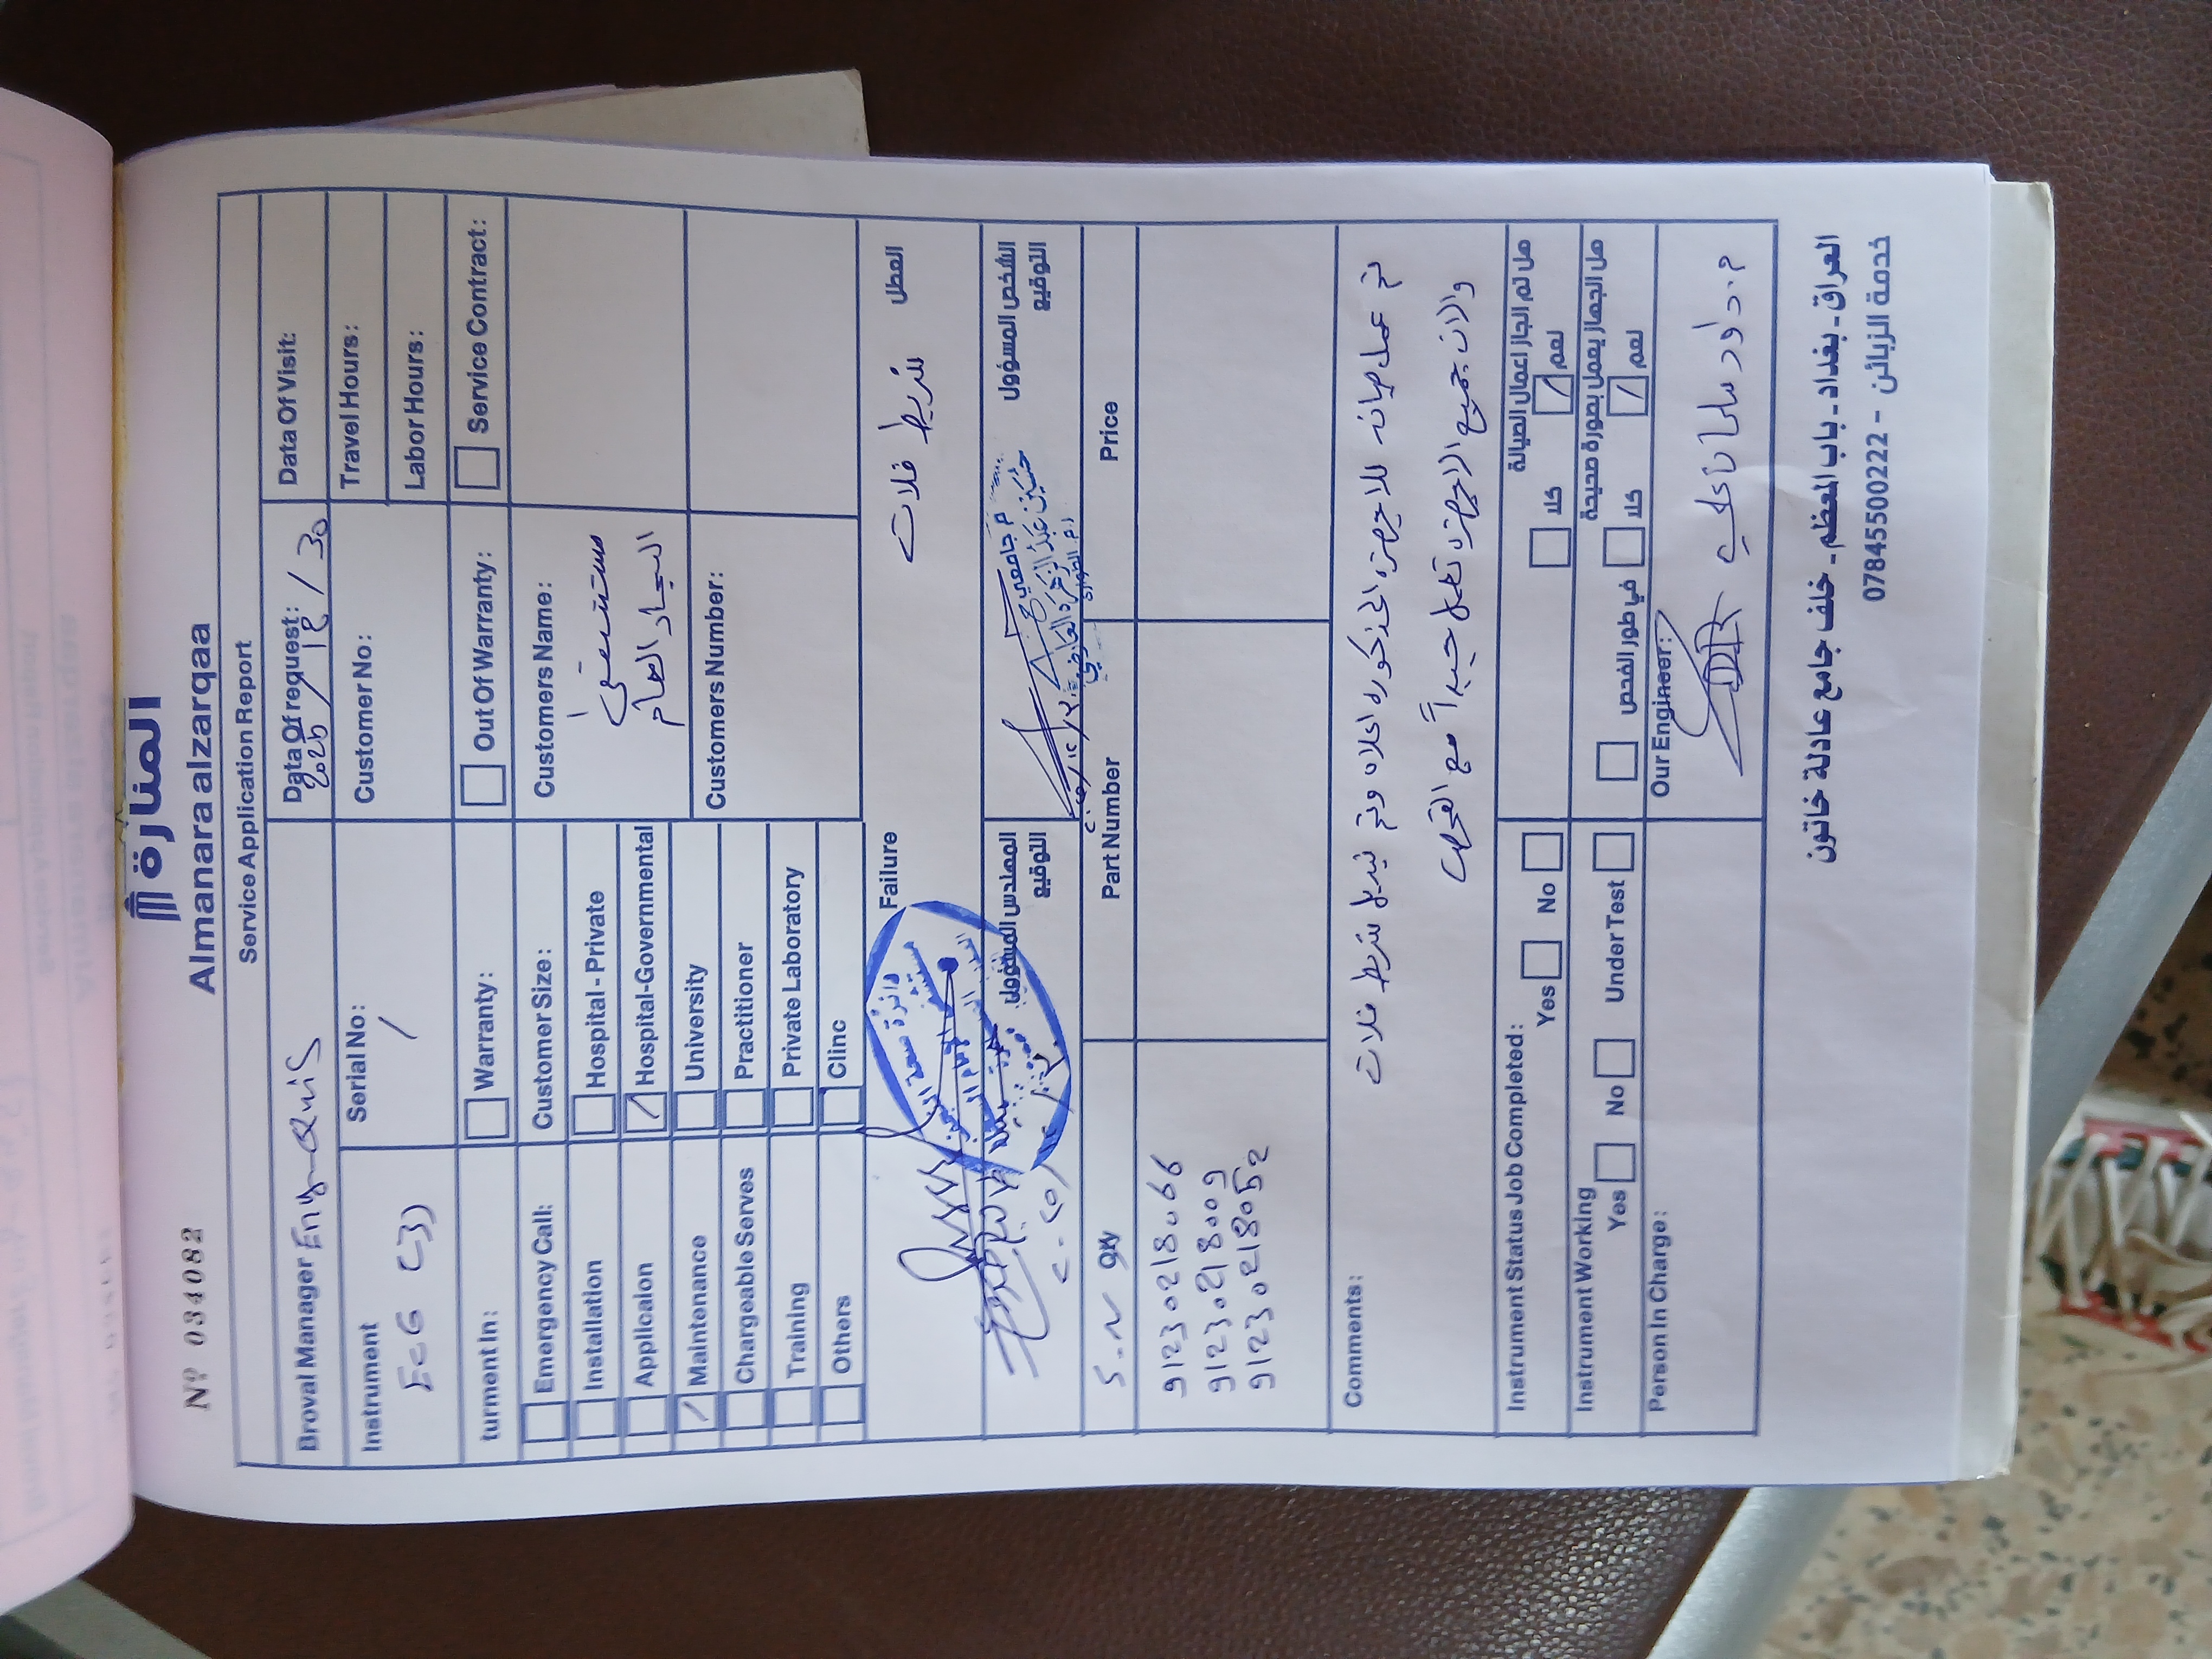 Nº 034082
المنارة
Almanara alzarqaa
Service Application Report
Broval Manager Eng-Qais
Data Of request:
2025 / 12 / 30
Data Of Visit:
Instrument
ECG (3)
Serial No:
/
Customer No:
Travel Hours:
Labor Hours:
turment In:
Warranty:
Out Of Warranty:
Service Contract:
Emergency Call:
Installation
Applicaion
Maintenance
Chargeable Serves
Training
Others
Customer Size:
Hospital - Private
Hospital-Governmental
University
Practitioner
Private Laboratory
Clinc
Customers Name:
مستشفى
السجاد العام
Customers Number:
Failure
العطل
شريط فلات
المهندس المسؤول
التوقيع
الشخص المسؤول
التوقيع
S.N qty
Part Number
Price
91230218066
91230218009
91230218052
Comments:
تم عمل صيانه للاجهزه المذكوره اعلاه وتم تبديل شريط فلات
والان جميع الاجهزه تعمل جيداً مع الفحص
Instrument Status Job Completed:
Yes
No
هل تم انجاز اعمال الصيانة
كلا
نعم
Instrument Working
Yes
No
Under Test
هل الجهاز يعمل بصورة صحيحة
في طور الفحص
كلا
نعم
Person In Charge:
Our Engineer:
م. داود سلمان علي
العراق - بغداد - باب المعظم - خلف جامع عادلة خاتون
خدمة الزبائن - 07845500222